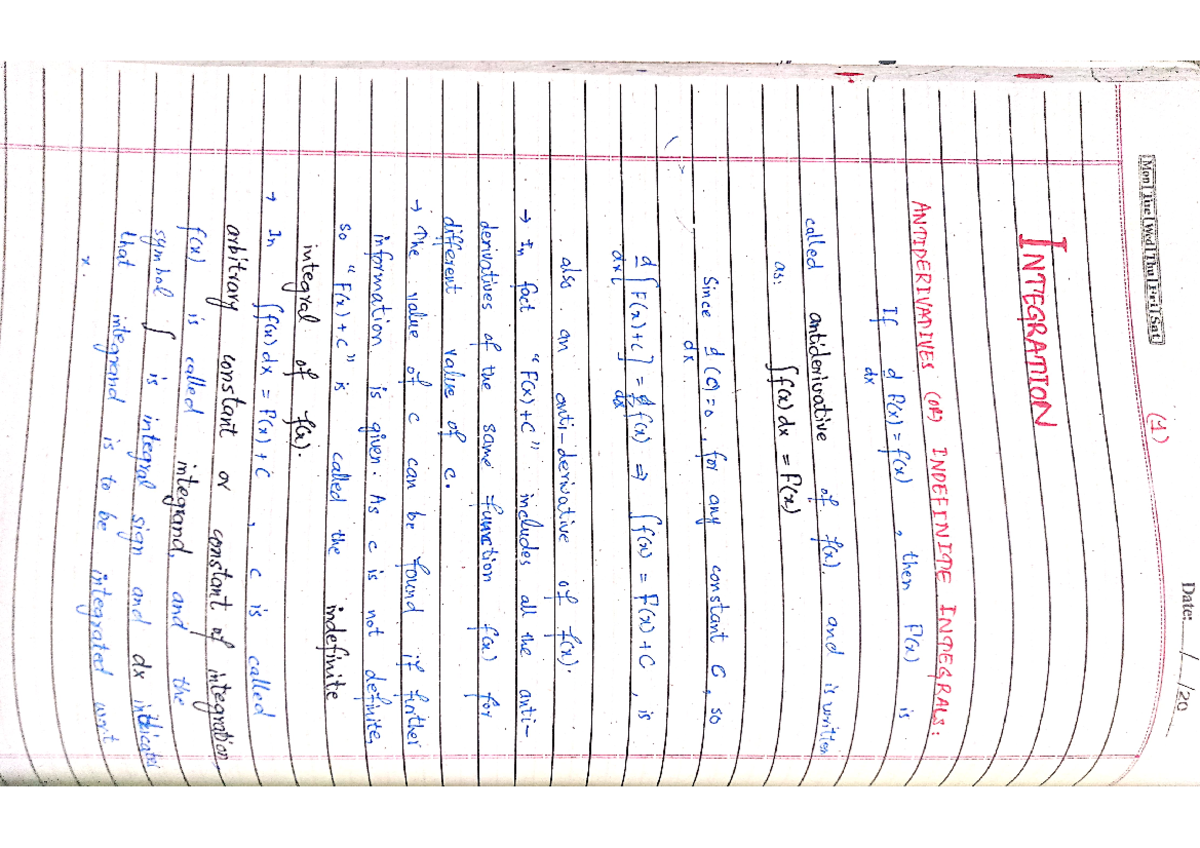 Date: __/__/20__
Mon Tue Wed Thu Fri Sat
(1)
INTEGRATION
ANTIDERIVATIVES (OR) INDEFINITE INTEGRALS:
If d/dx F(x) = f(x) , then F(x) is
called antiderivative of f(x). and is written
as: ∫f(x) dx = F(x)
Since d/dx (c) = 0 , for any constant C, so
d/dx [F(x)+c] = f(x) ⇒ ∫f(x) = F(x) + C , is
also an anti-derivative of f(x).
→ In fact "F(x)+C" includes all the anti-
derivatives of the same function f(x) for
different value of c.
→ The value of c can be found if further
information is given. As c is not definite,
so "F(x)+c" is called the indefinite
integral of f(x).
→ In ∫f(x) dx = F(x) + c , c is called
arbitrary constant or constant of integration
f(x) is called integrand, and the
symbol ∫ is integral sign and dx indicates
that integrand is to be integrated w.r.t
x.